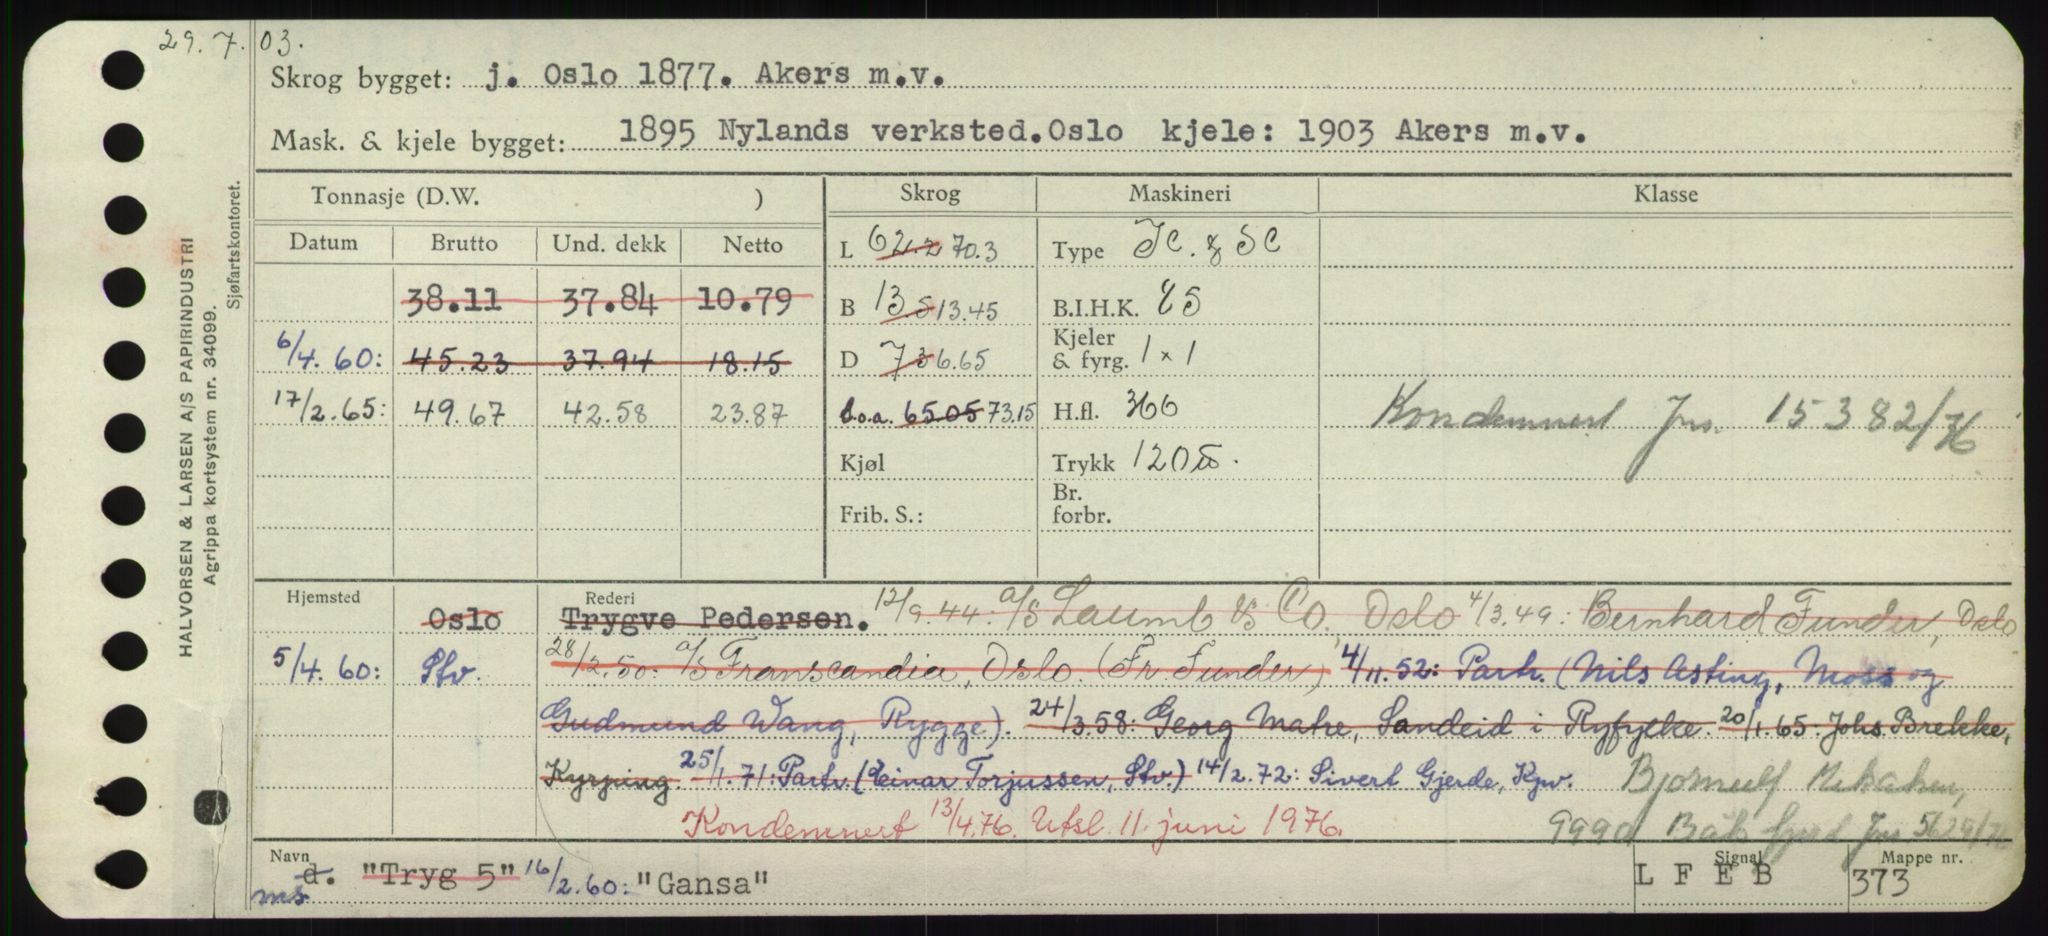 29. 7. 03.
Skrog bygget: j. Oslo 1877. Akers m.v.
Mask. & kjele bygget: 1895 Nylands verksted.Oslo kjele: 1903 Akers m.v.
HALVORSEN & LARSEN A/S PAPIRINDUSTRI
Agrippa kortsystem nr. 34099.
Sjøfartskontoret.
Tonnasje (D.W. ) Skrog Maskineri Klasse
Datum Brutto Und. dekk Netto
L 62.2 70.3 Type
38.11 37.84 10.79 B 13.5 13.45 B.I.H.K. 85
6/4. 60: 45.23 37.94 18.15 D 7.3 6.65 Kjeler & fyrg. 1 × 1
17/2.65: 49.67 42.58 23.87 l.o.a. 65.05 73.15 H.fl. 366 Kondemnert Jns. 15382/76
Kjøl Trykk 120
Frib. S.: Br. forbr.
Hjemsted Oslo Rederi Trygve Pedersen. 12/9.44: a/s Laumb & Co, Oslo 4/3.49: Bernhard Funder, Oslo
5/4. 60: Stv. 28/2.50: a/s Transcandia, Oslo. (Fr. Funder) 4/11.52: Partr. (Nils Asting, Moss og
Gudmund Wang, Rygge). 24/3.58: Georg Mahre, Sandeid i Ryfylke. 20/1.65: Johs. Brekke,
Kyrping. 25/1.71: Partr. (Einar Torjussen, Stv.) 14/2.72: Sivert Gjerde, Kpv. Bjørnulf
Kondemnert 13/4.76. Utsl. 11. juni 1976. 9990 Båtsfjord Jns 5629/76
Navn d. "Tryg 5" 16/2.60: "Gansa" Signal L F E B Mappe nr. 373
ms